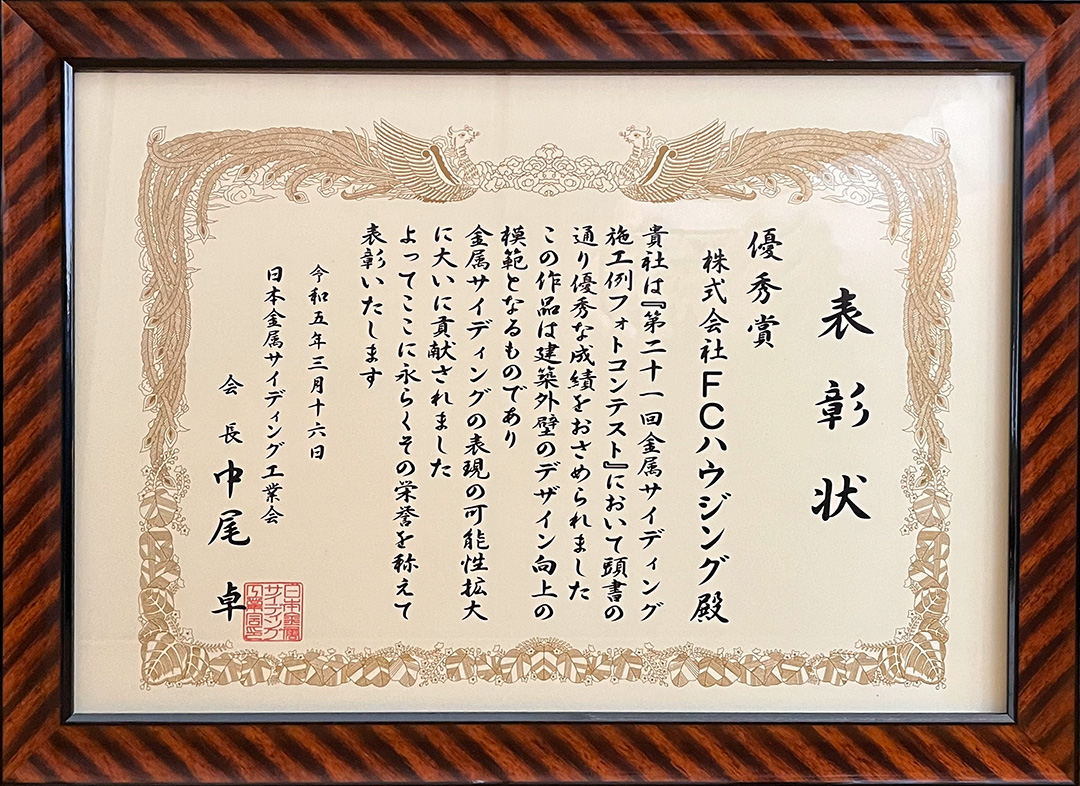 表彰状
優秀賞
株式会社FCハウジング殿
貴社は『第二十一回金属サイディング
施工例フォトコンテスト』において頭書の
通り優秀な成績をおさめられました
この作品は建築外壁のデザイン向上の
模範となるものであり
金属サイディングの表現の可能性拡大
に大いに貢献されました
よってここに永らくその栄誉を称えて
表彰いたします
令和五年三月十六日
日本金属サイディング工業会
会長中尾卓
日本金属
サイディング
工業会印